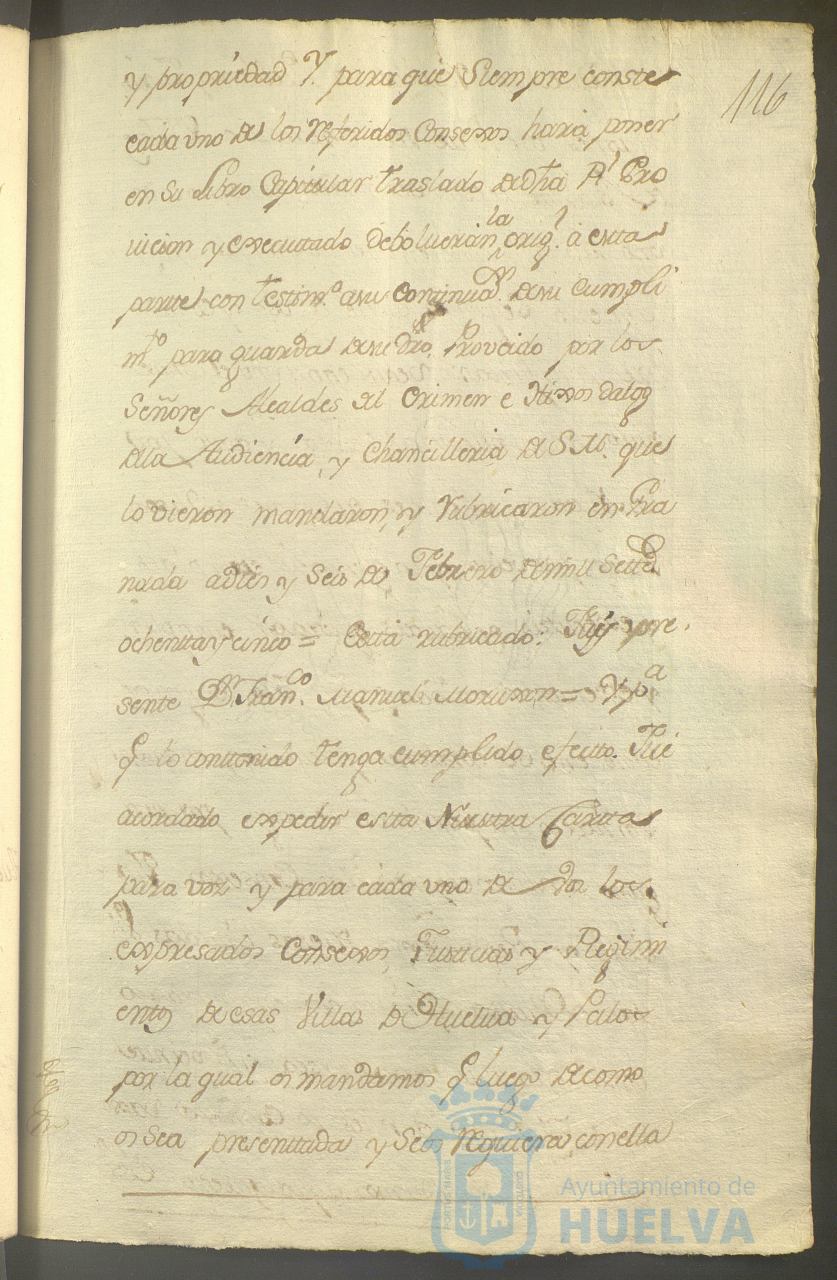 116
y propriedad Y. para que siempre conste
cada uno de los referidos Consexos hara poner
en su Libro Capitular traslado de dha Rl Pro
vicion y executado debolueràn la orig.l â esta
parte con testim.o a su continua.on de su cumpli
m.to para guarda de su dro. Proveido por los
Señores Alcaldes del Crimen e Hixos dalgo
de la Audiencia, y Chancilleria de S.M. que
lo vieron mandaron, y rubricaron en Gra
nada a dies y seis de Febrero de mil Settd
ochenta y cinco = Està rubricado: Fuy pre
sente Dn Fran.co Manuel = Y p.a
q lo contenido tenga cumplido efecto. Fue
acordado expedir esta Nuestra Carta
para vos y para cada uno de vos los
expresados Consexos, Justicias y Regimi
entos de esas Villas de Huelva y Palos
por la qual os mandamos q luego de como
os sea presentada y seais requiera con ella
Ayuntamiento de
HUELVA